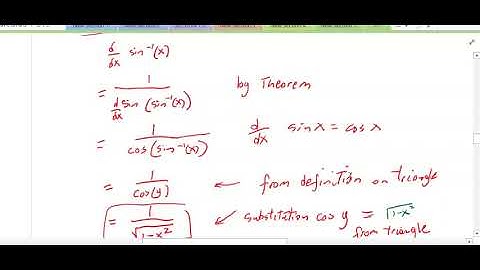 d/dx sin⁻¹(x)
= 1 / (d/dx sin(sin⁻¹(x))) by Theorem
= 1 / cos(sin⁻¹(x)) d/dx sin x = cos x
= 1 / cos(y) ← from definition on triangle
= 1 / √(1-x²) ← substitution cos y = √(1-x²)
from triangle